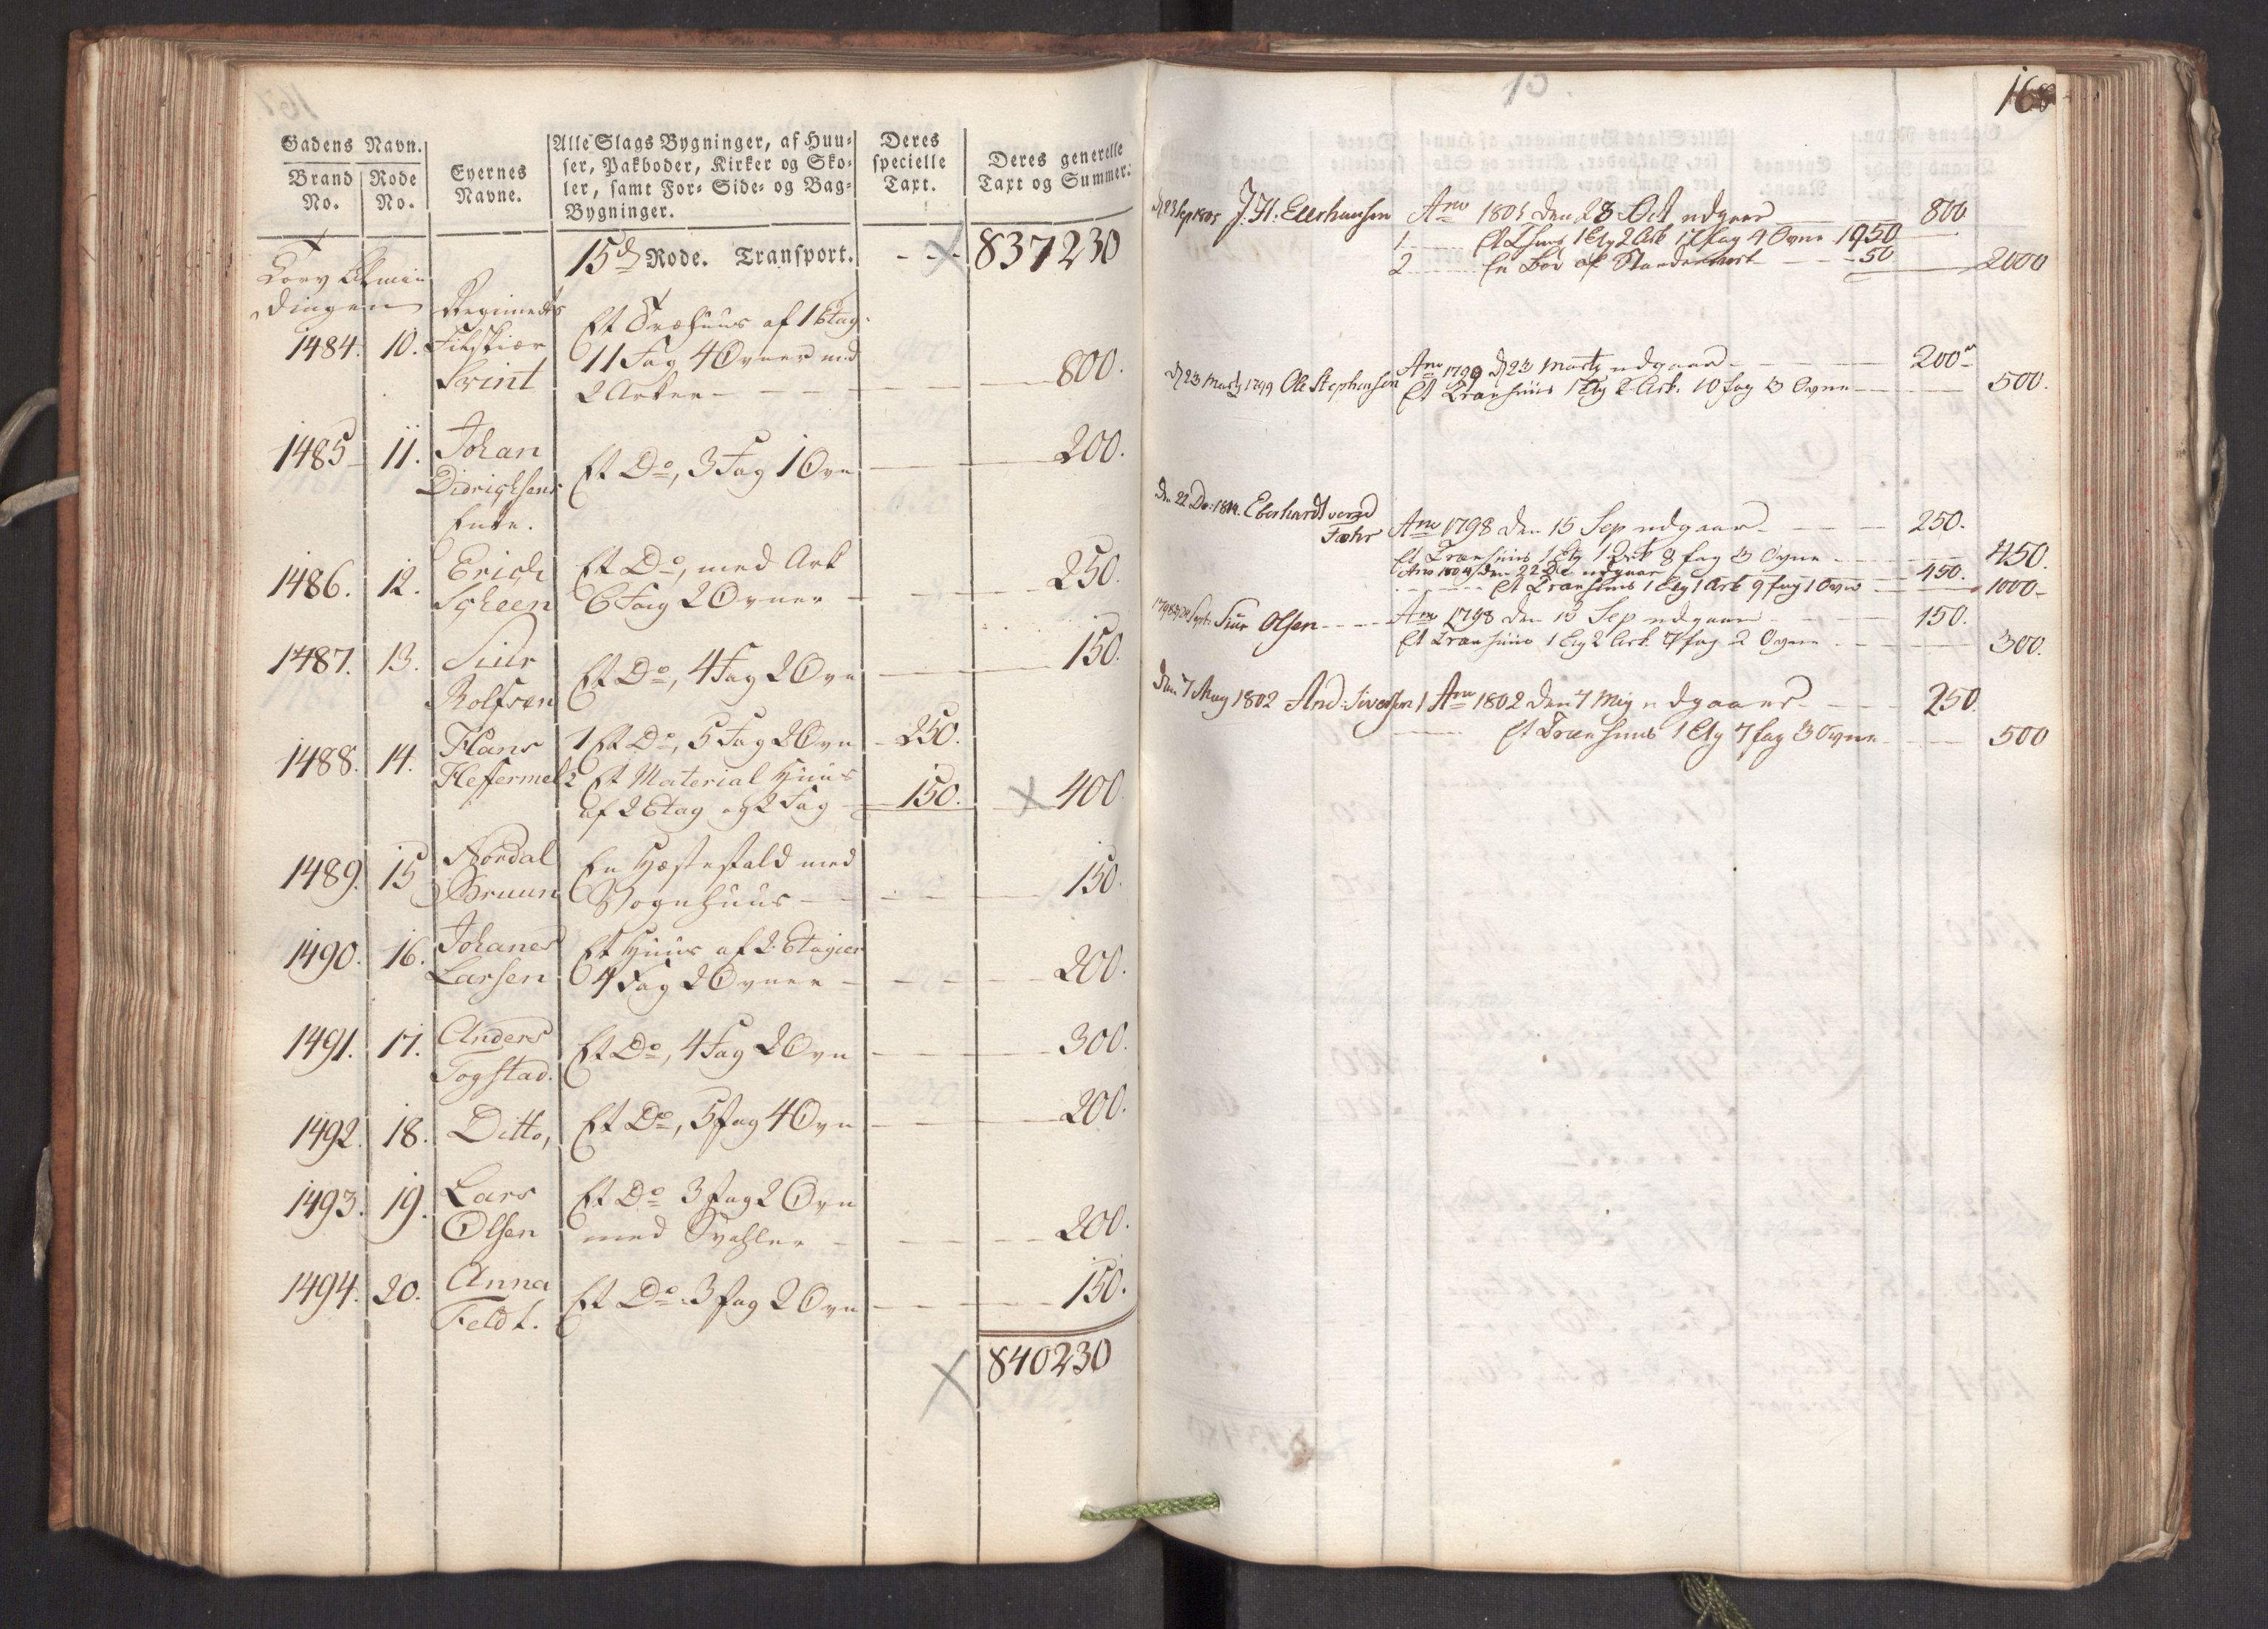 Gadens Navn.
Brand No.
Rode No.
Eyernes Navne.
Alle Slags Bygninger, af Huu-
ser, Pakboder, Kirker og Sko-
ler, samt For- Side- og Bag-
Bygninger.
Deres
specielle
Taxt.
Deres generelle
Taxt og Summer.
15de Rode. Transport. 837230
dingen Regiments
1484. 10. Et Træhuus af 1 Etag:
11 Fag 4 Ovner med
2 Arker 800.
1485 11. Johan
Didrichsens
Enke.
Et Do, 3 Fag 1 Ovn 200.
1486. 12. Erich
Scheen
Et Do, med Ark
6 Fag 2 Ovner 250.
1487. 13. Siur
Rolfsen
Et Do, 4 Fag 2 Ovn 150.
1488. 14. Hans
Heffermel
1 Et Do, 5 Fag 2 Ovn 250.
2 Et Material Huus
af 2 Etag og 2 Fag 150. 400.
1489. 15 Nordal
Bruun
En Hæstestald med
Vognhuus 150.
1490. 16. Johanes
Larsen
Et Huus af 2 Etagier
4 Fag 2 Ovner 200.
1491. 17. Anders
Togstad.
Et Do, 4 Fag 2 Ovn 300.
1492. 18. Ditto,
Et Do, 5 Fag 4 Ovn 200.
1493. 19. Lars
Olsen
Et Do 3 Fag 2 Ovn
med 200.
1494. 20. Anna
Feldt.
Et Do 3 Fag 2 Ovn 150.
840230
15.
168
J. H. Anno 1805 den 23 udgaar 800
1 Et 1 Etg 2 Ark 4 Ovne 1950
2 En Bod af 50 2000
d 23 Marty 1799 Ole Stephensen Ano 1799 d 23 Marty udgaar 200
Et Træehuus 1 Etg 2 Ark. 10 fag 3 Ovne 500.
Den 22 Dec: 1804. Eberhardt
Anno 1798 den 15 Sep udgaar 250.
Et Træehuus 1 Etg 1 Ark 8 fag 3 Ovne 450.
Ano 1804 den 22 De udgaar 450.
Et Træehuus 1 Etg 1 Ark 9 fag 1 Ovn 1000
Siur Olsen Ano 1798 den 15 Sep udgaar 150.
Et Træehuus 1 Etg 2 Ark 7 fag 2 Ovne 300.
Den 7 May 1802 And: Siversen Ano 1802 den 7 May udgaaer 250.
Et Træehuus 1 Etg 7 fag 3 Ovne 500